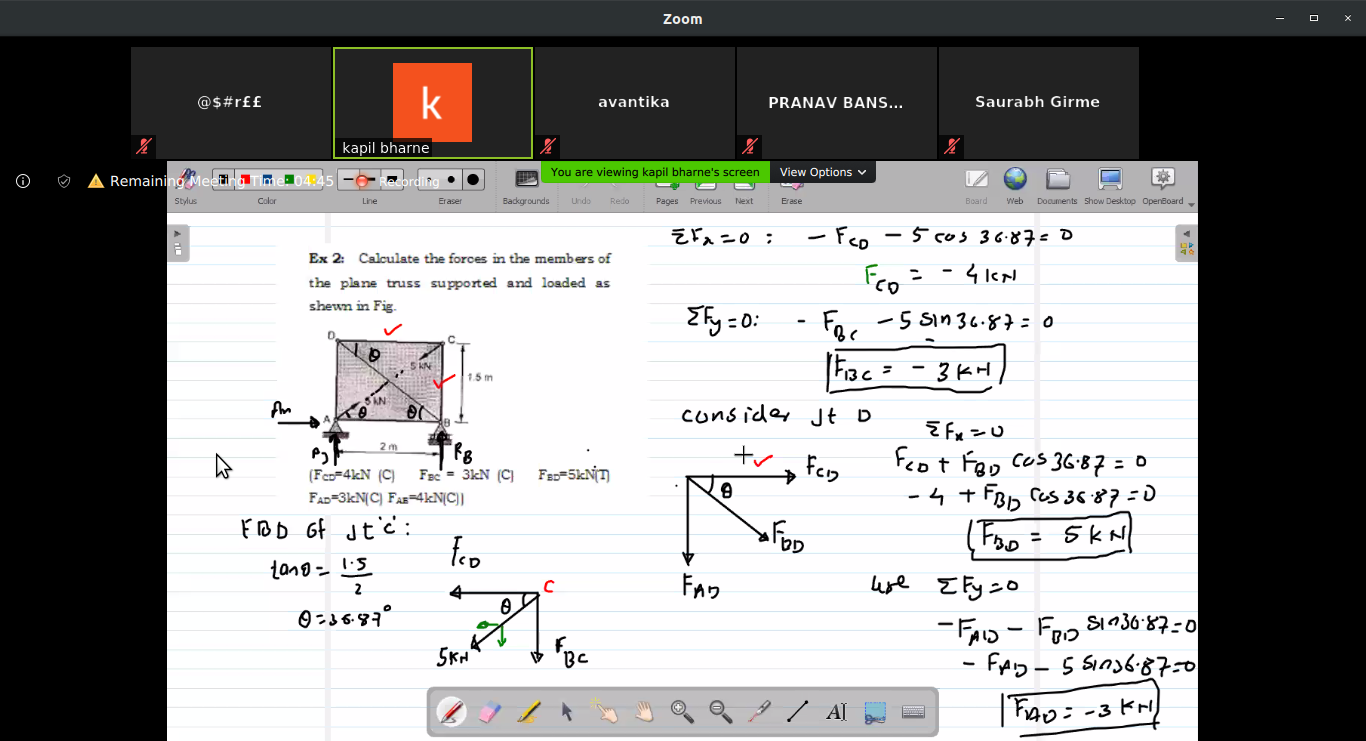 Zoom
@$#r££
k
kapil bharne
avantika
PRANAV BANS...
Saurabh Girme
Remaining Meeting Time: 04:45
Recording
You are viewing kapil bharne's screen
View Options
Stylus
Color
Line
Eraser
Backgrounds
Undo
Redo
Pages
Previous
Next
Erase
Board
Web
Documents
Show Desktop
OpenBoard
Ex 2: Calculate the forces in the members of
the plane truss supported and loaded as
shewn in Fig.
D
θ
C
5 kN
1.5 m
5 kN
A
θ
θ
B
2 m
RB
(FCD=4kN (C) FBC = 3kN (C) FBD=5kN(T)
FAD=3kN(C) FAB=4kN(C))
FBD of Jt 'c':
tanθ = 1.5/2
θ = 36.87°
FCD
C
θ
5KN
FBC
ΣFx=0 : - FCD - 5 cos 36.87 = 0
FCD = - 4 kN
ΣFy=0: - FBC - 5 sin36.87 = 0
FBC = - 3 KN
consider Jt D
FCD
θ
FBD
FAD
ΣFx=0
FCD + FBD cos36.87 = 0
- 4 + FBD cos 36.87=0
FBD = 5 KN
use ΣFy=0
-FAD - FBD sin36.87=0
- FAD - 5 sin36.87=0
FAD = -3 KN